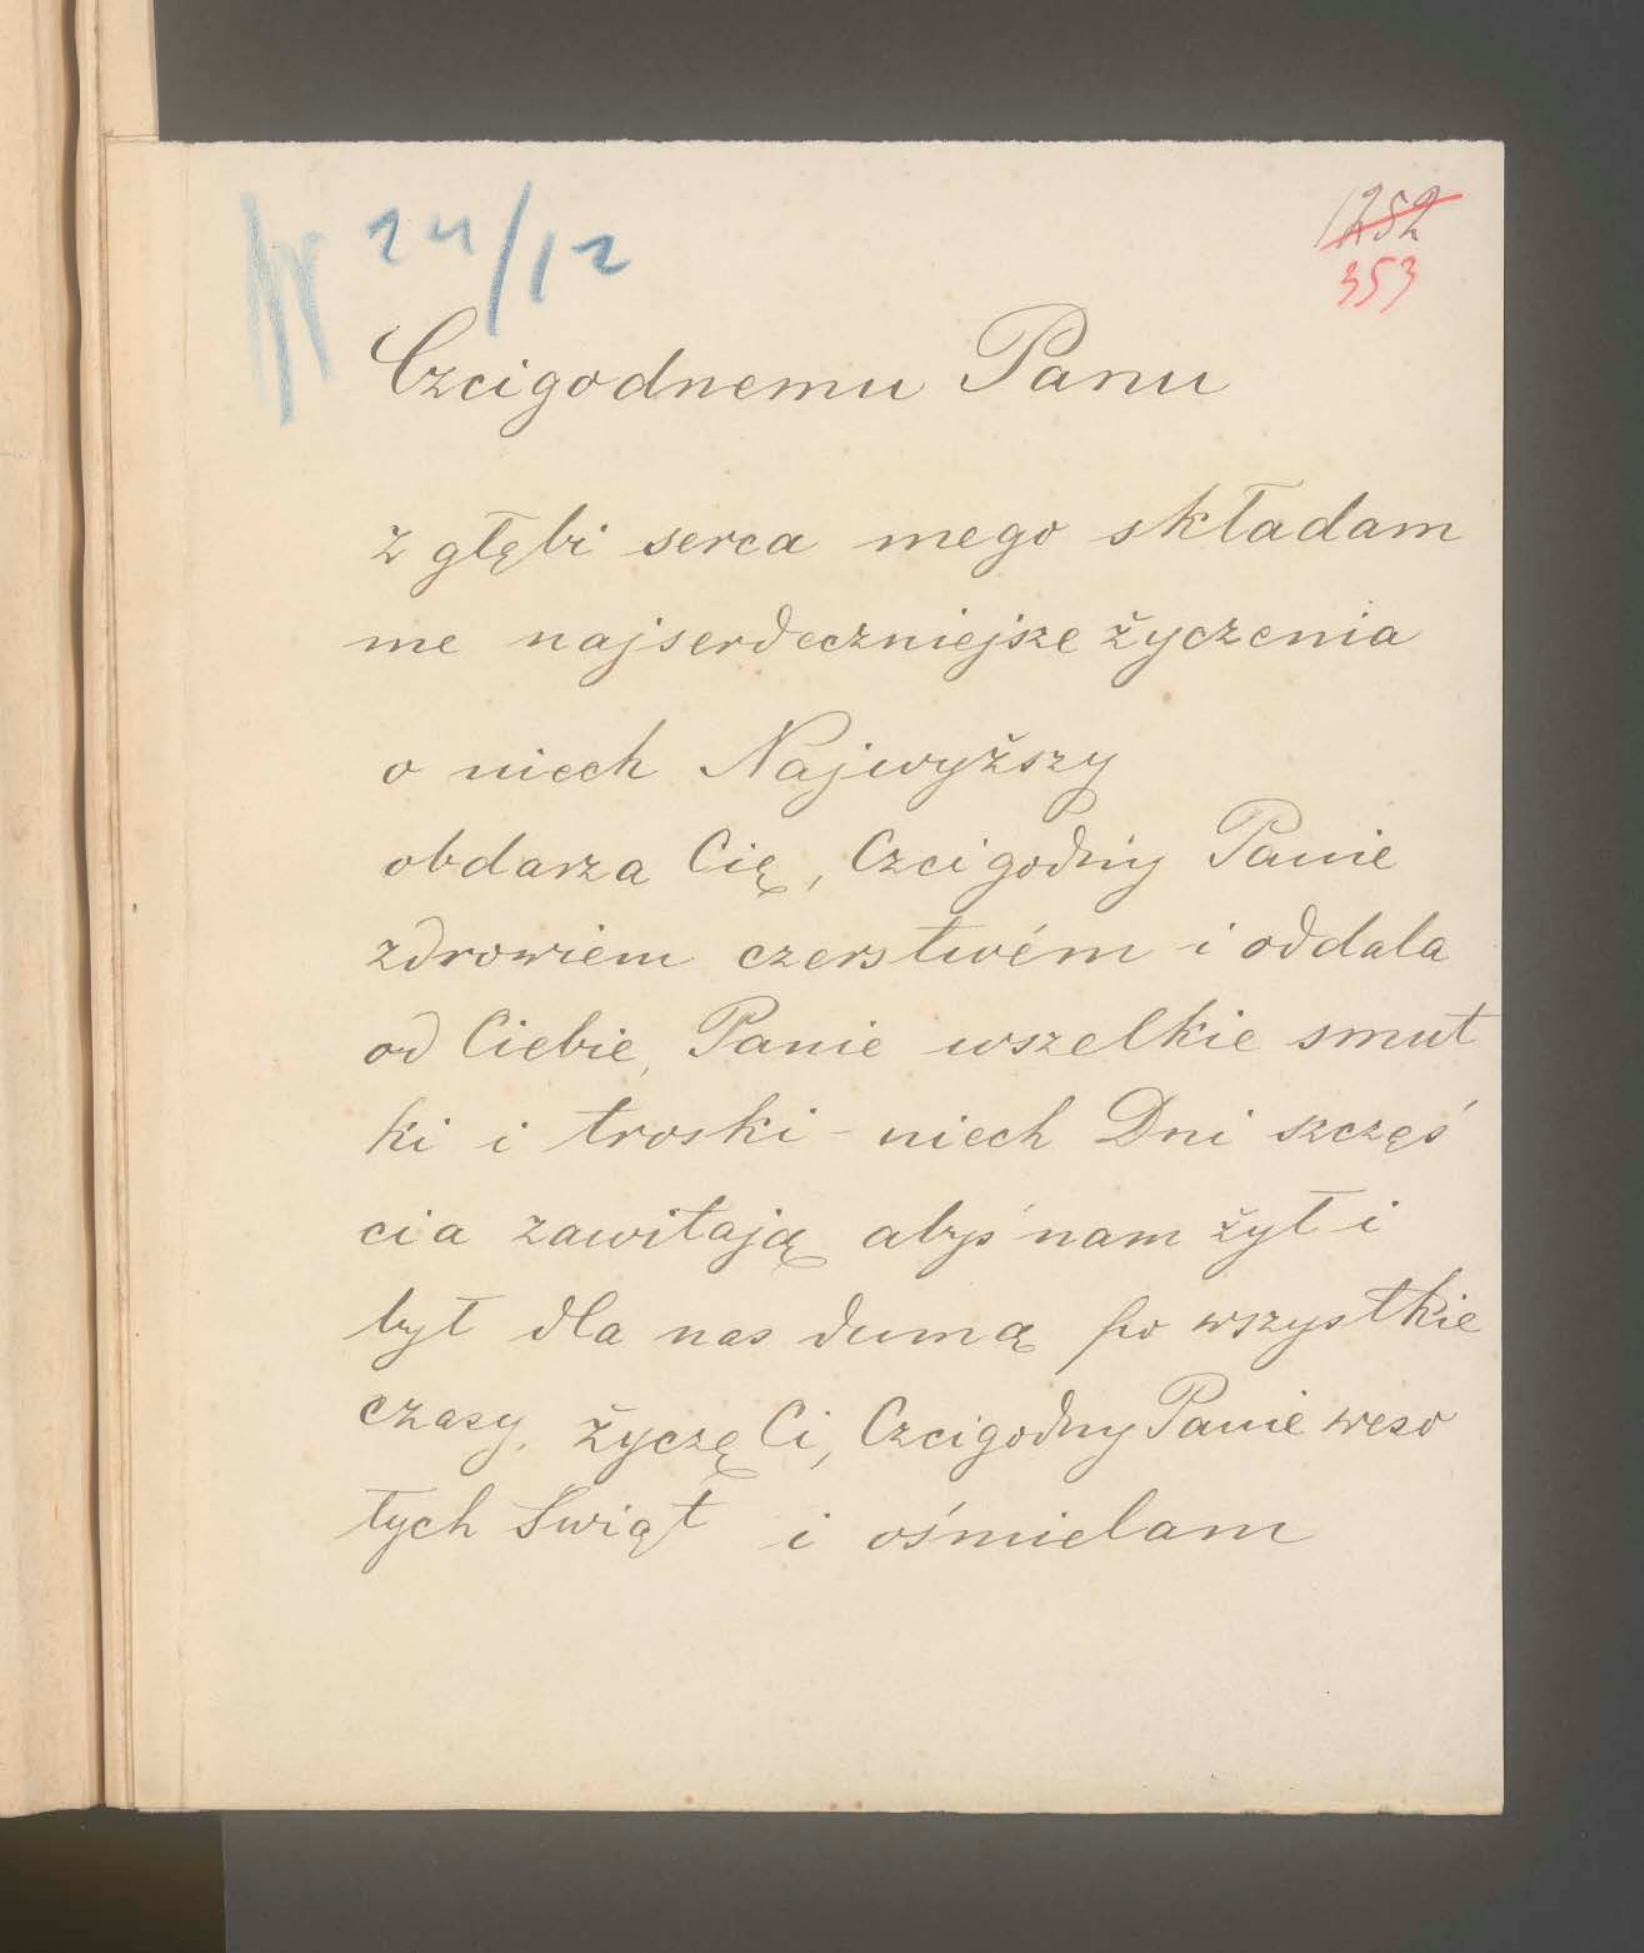 24/12
1252
353
Czcigodnemu Panu
z głębi serca mego składam
me najserdeczniejsze życzenia
o niech Najwyższy
obdarza Cię, Czcigodny Panie
zdrowiem czerstwém i oddala
od Ciebie, Panie wszelkie smut
ki i troski - niech Dni szczęś
cia zawitają abyś nam żył i
był dla nas dumą po wszystkie
czasy. życzę Ci, Czcigodny Panie weso
łych Swiąt i ośmielam